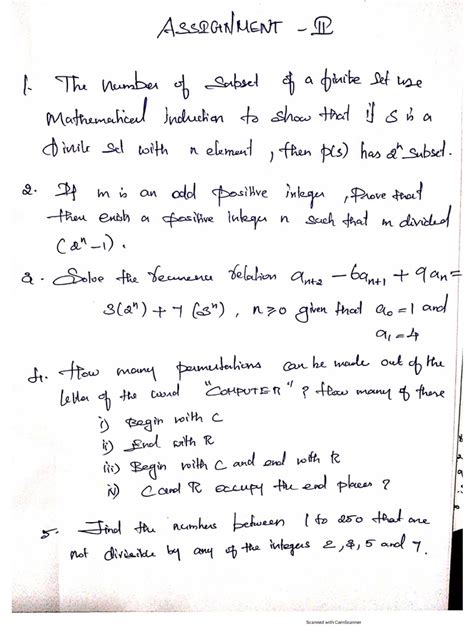 ASSIGNMENT - II
1. The number of subset of a finite set use
Mathematical Induction to show that if S is a
finite set with n element, then p(s) has 2^n subset.
2. If m is an odd positive integer, Prove that
then exish a positive integer n such that m divided
(2^n - 1).
3. Solve the recurrence relation a_{n+2} - 6a_{n+1} + 9a_n =
3(2^n) + 7(3^n), n ≥ 0 given that a_0 = 1 and
a_1 = 4
4. How many permutations can be made out of the
letter of the word "COMPUTER"? How many of these
i) Begin with C
ii) End with R
iii) Begin with C and end with R
iv) C and R occupy the end places?
5. Find the numbers between 1 to 250 that are
not divisible by any of the integers 2, 3, 5 and 7.
Scanned with CamScanner